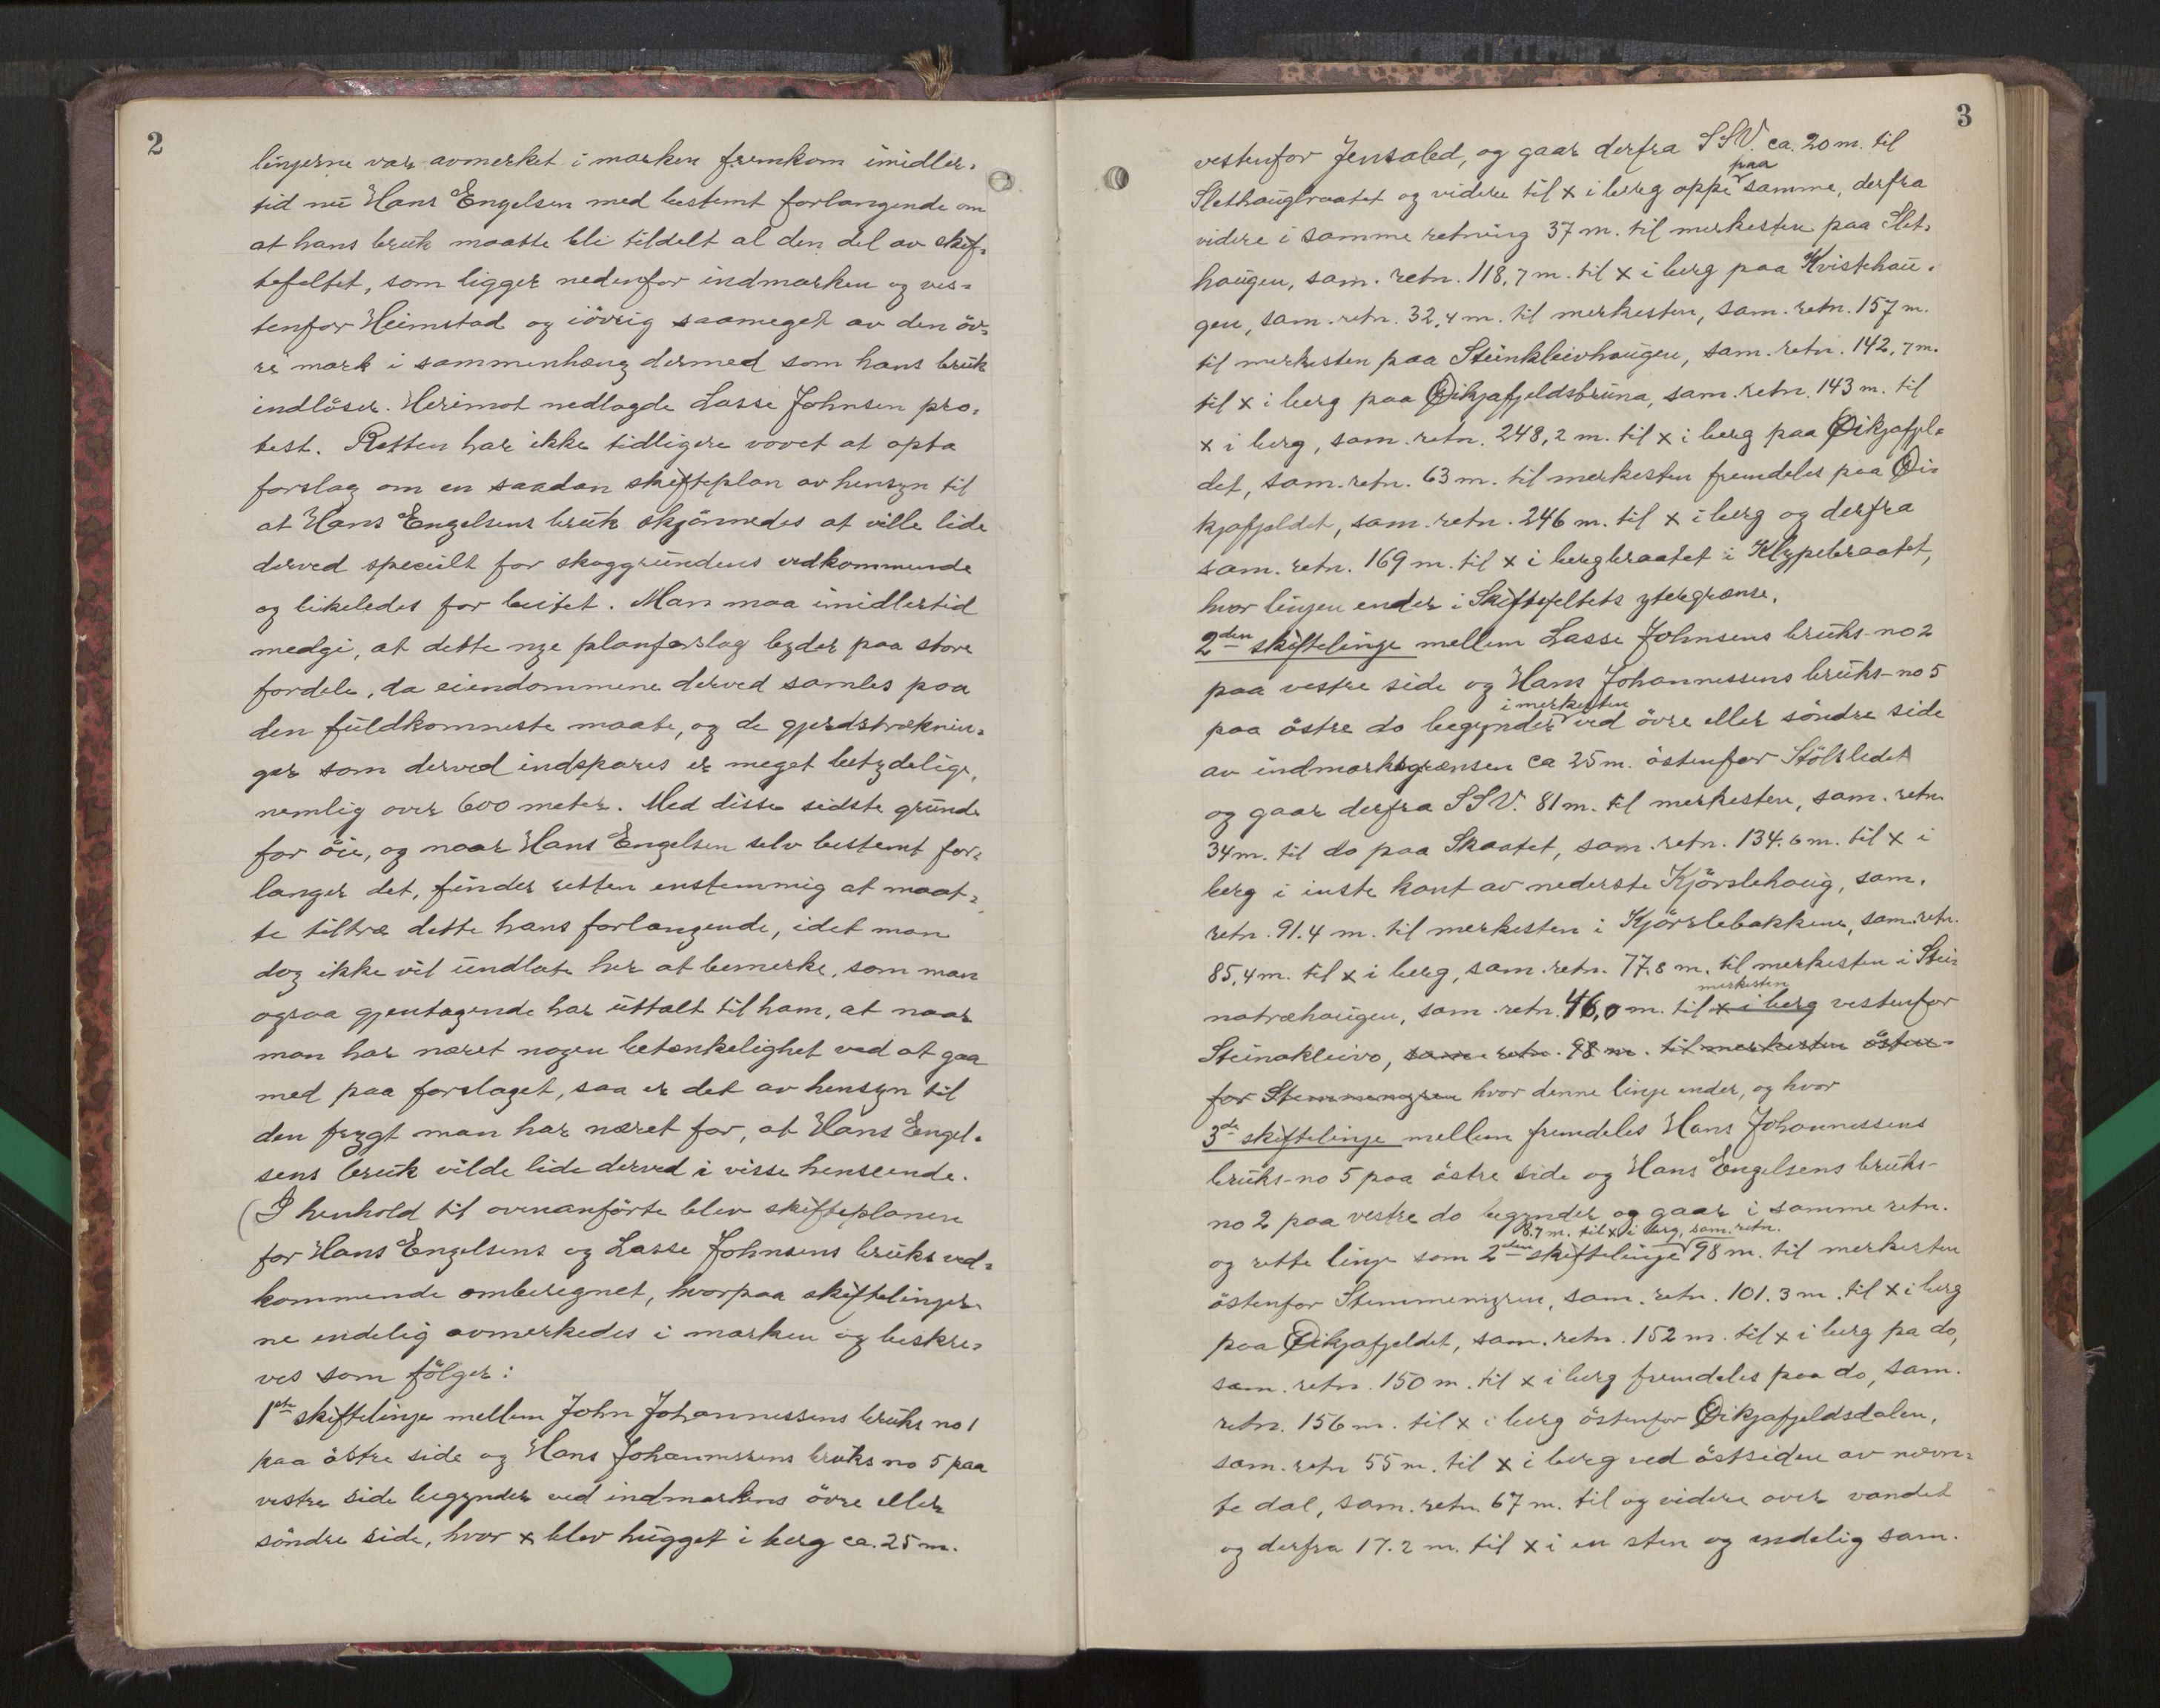 2
linjerne var avmerket i marken fremkom imidler-
tid nu Hans Engelsen med bestemt forlangende om
at hans bruk maatte bli tildelt al den del av skif-
tefeltet, som ligger nedenfor indmarken og ves-
tenfor Heimstad og iövrig saameget av den öv-
re mark i sammenhæng dermed som hans bruk
indlöser. Herimot nedlagde Lasse Johnsen pro-
test. Retten har ikke tidligere vovet at opta
forslag om en saadan skifteplan av hensyn til
at Hans Engelsens bruk skjönnedes at ville lide
derved specielt for skoggrundens vedkommende
og likeledes for beitet. Man maa imidlertid
medgi, at dette nye planforslag byder paa store
fordele, da eiendommene derved samles paa
den fuldkomneste maate, og de gjerdstræknin-
ger som derved indspares er meget betydelige,
nemlig over 600 meter. Med disse sidste grunde
for öie, og naar Hans Engelsen selv bestemt for-
langer det, finder retten enstemmig at maat-
te tiltræ dette hans forlangende, idet man
dog ikke vil undlate her at bemerke, som man
ogsaa gjentagende har uttalt til ham, at naar
man har næret nogen betænkelighet ved at gaa
med paa forslaget, saa er det av hensyn til
den frygt man har næret for, at Hans Engel-
sens bruk vilde lide derved i visse henseende.
(I henhold til ovenanförte blev skifteplanen
for Hans Engelsens og Lasse Johnsens bruks ved-
kommende omberegnet, hvorpaa skiftelinjer-
ne endelig avmerkedes i marken og beskre-
ves som fölger:
1ste skiftelinje mellem John Johannessens bruks no 1
paa östre side og Hans Johannessens bruks no 5 paa
vestre side begynder ved indmarkens övre eller
söndre side, hvor x blev hugget i berg ca. 25 m.
3
vestenfor Jensaled, og gaar derfra SSV. ca. 20 m. til
paa
Slethaugbraatet og videre til x i berg oppe samme, derfra
videre i samme retning 37 m. til merkesten paa Slet-
haugen, sam. retn. 118,7 m. til x i berg paa Kvistehau-
gen, sam. retn. 32,4 m. til merkesten, sam. retn. 157 m.
til merkesten paa Steinkleivhaugen, sam. retn. 142,7 m.
til x i berg paa Øikjafjeldsbruna, sam. retn. 143 m. til
x i berg, sam. retn. 248,2 m. til x i berg paa Øikjafjel-
det, sam. retn. 63 m. til merkesten fremdeles paa Øi-
kjafjeldet, sam. retn. 246 m. til x i berg og derfra
sam. retn. 169 m. til x i bergbraatet i Klypebraatet,
hvor linjen ender i Skiftefeltets ytergrænse.
2den skiftelinje mellem Lasse Johnsens bruks-no 2
paa vestre side og Hans Johannessens bruks-no 5
i merkesten
paa östre do begynder ved övre eller söndre side
av indmarksgrænsen ca 25 m. östenfor Stölsledet
og gaar derfra SSV. 81 m. til merkesten, sam. retn
34 m. til do paa Skaatet, sam. retn. 134.6 m. til x i
berg i inste kant av nederste Kjörslehaug, sam.
retn. 91.4 m. til merkesten i Kjörslebakkene, sam. retn.
85,4 m. til x i berg, sam. retn. 77.8 m. til merkesten i Stei-
merkesten
natræhaugen, sam. retn. 46,0 m. til x i berg vestenfor
Steinakleivo, sam. retn. 98 m. til merkesten östen-
for Stemmemyren hvor denne linje ender, og hvor
3de skiftelinje mellem fremdeles Hans Johannessens
bruks-no 5 paa östre side og Hans Engelsens bruks-
no 2 paa vestre do begynder og gaar i samme retn.
18.7 m. til x i berg, sam. retn.
og rette linje som 2den skiftelinje 98 m. til merkesten
östenfor Stemmemyren, sam. retn. 101.3 m. til x i berg
paa Øikjafjeldet, sam. retn. 152 m. til x i berg pa do,
sam. retn. 150 m. til x i berg fremdeles paa do, sam.
retn. 156 m. til x i berg östenfor Øikjafjeldsdalen,
sam. retn 55 m. til x i berg ved östsiden av nævn-
te dal, sam. retn. 67 m. til og videre over vandet
og derfra 17.2 m. til x i en sten og endelig sam.